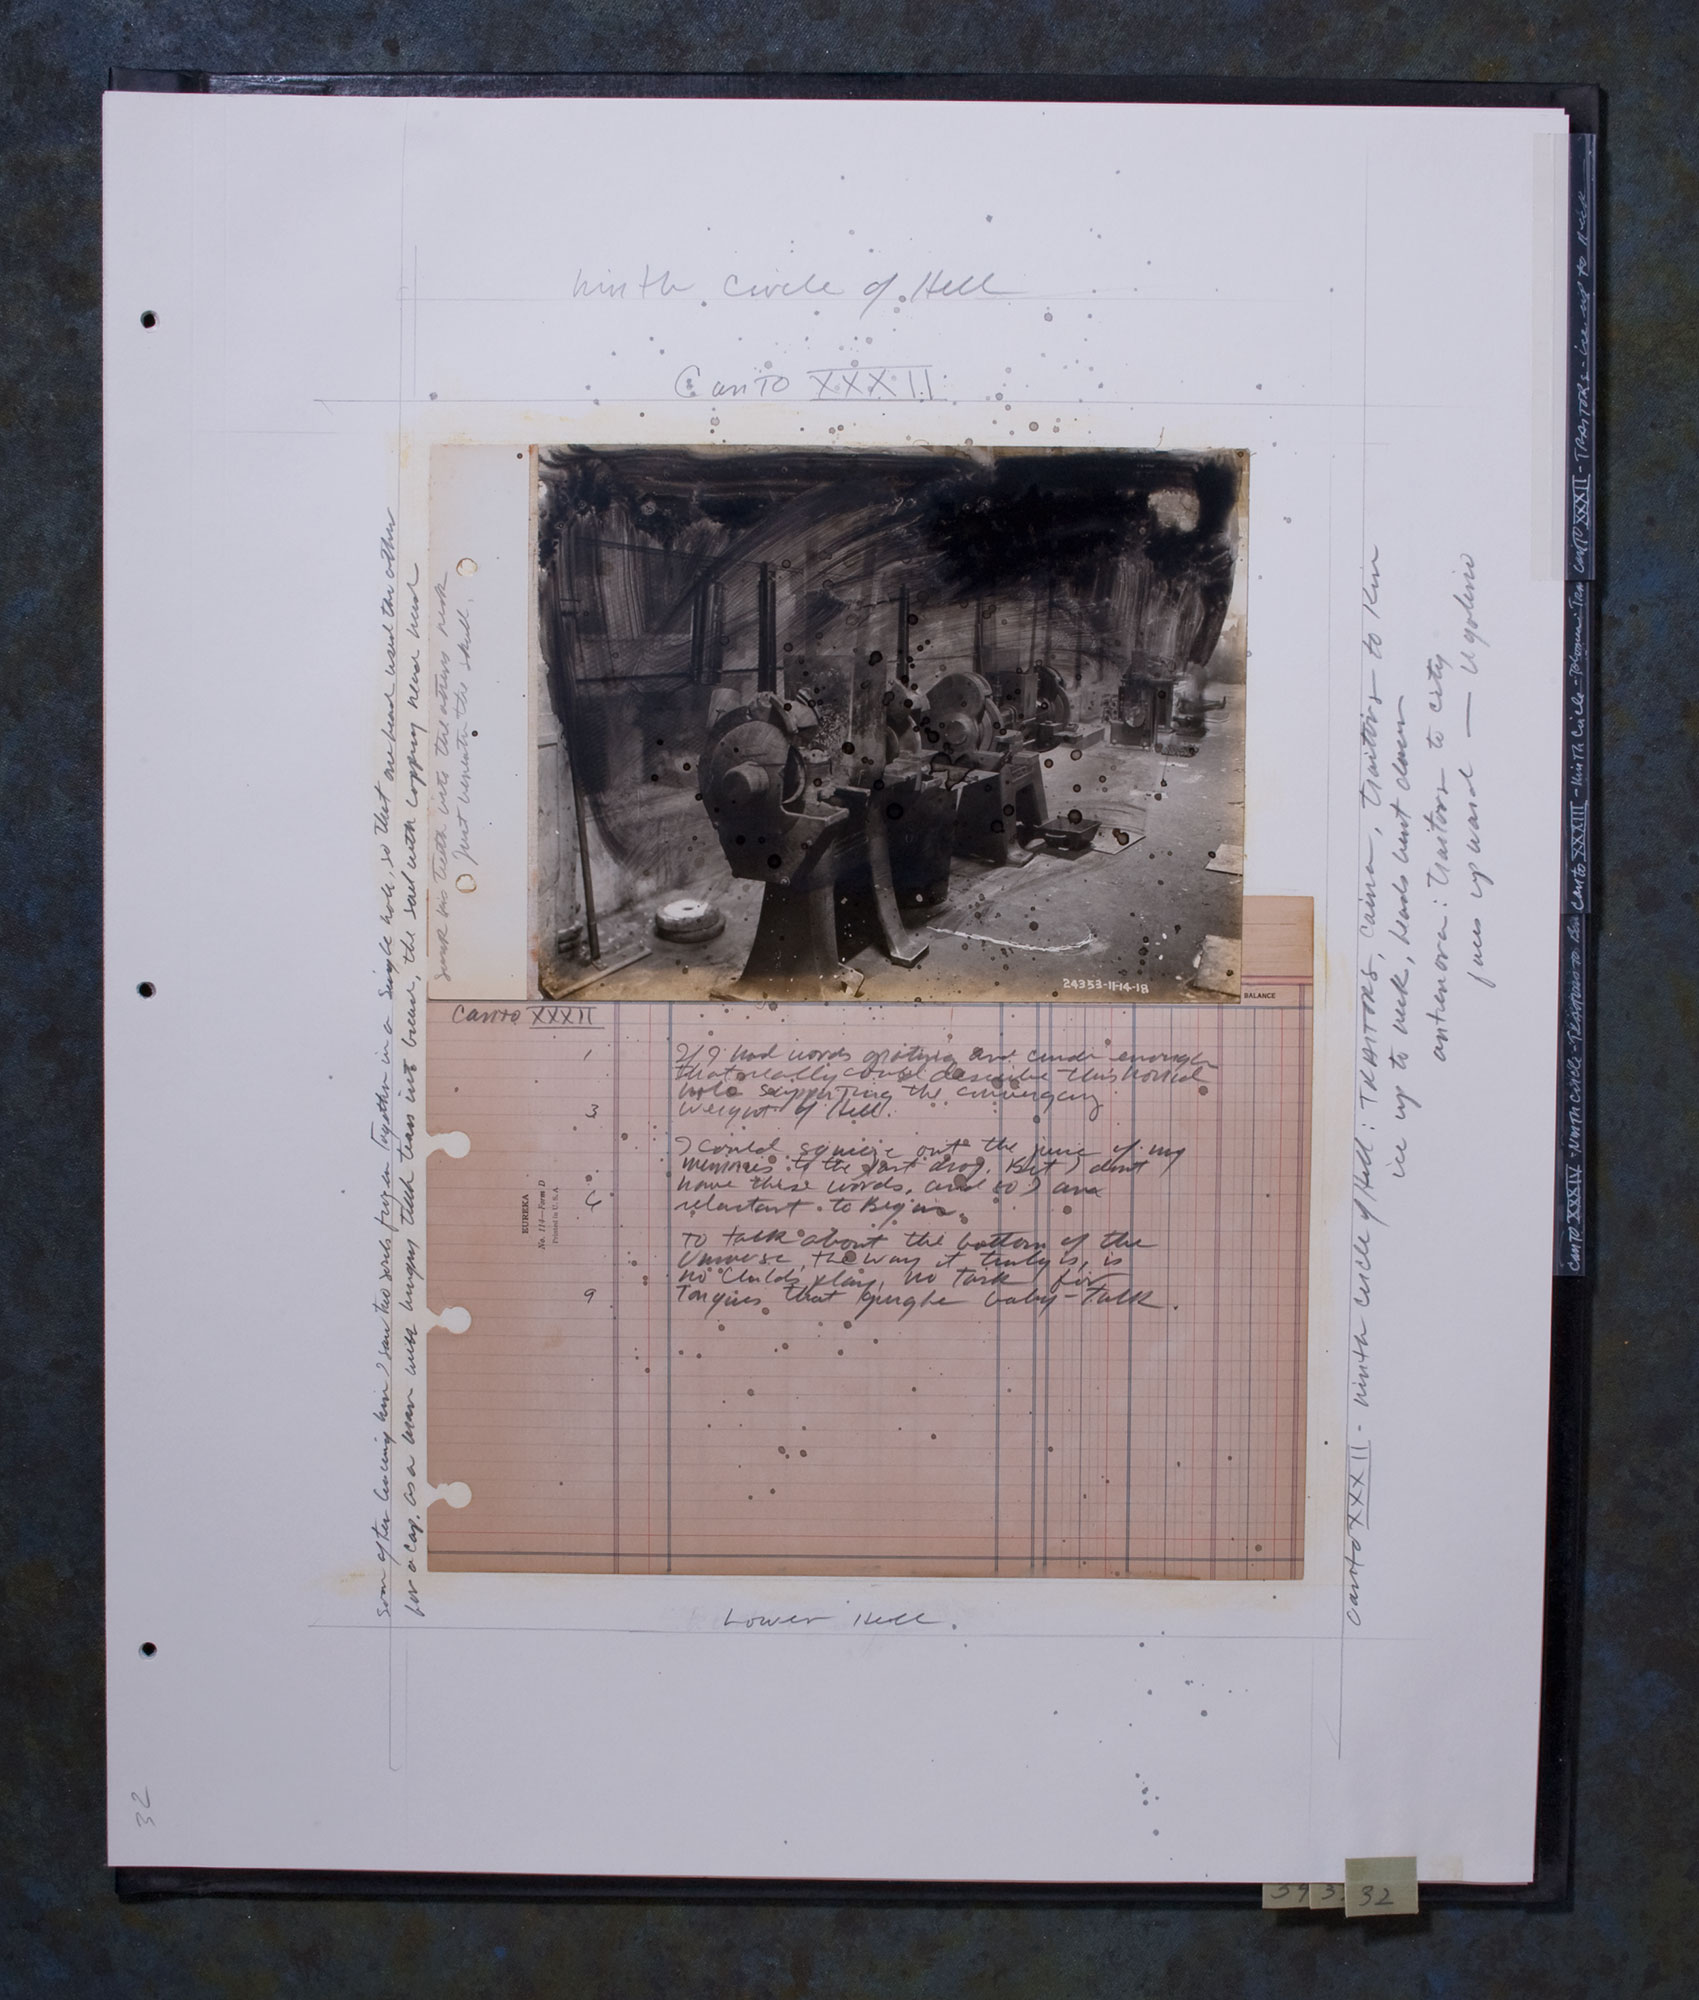 Ninth Circle of Hell
Canto XXXII
Soon after leaving him I saw two souls frozen together in a single hole, so that one head used the other
for a cap. as a man with hungry teeth tears into bread, the soul with capping head had
sunk his teeth into the others neck
Just beneath the skull.
24353-11-14-18
BALANCE
Canto XXXII
1 If I had words grating and crude enough
that really could describe this horrid
hole supporting the converging
3 weight of Hell.
I could squeeze out the juice of my
memories to the last drop. But I dont
have these words, and so I am
6 reluctant to Begin.
To talk about the bottom of the
Universe, the way it truly is, is
no childs play, no task for
9 Tongues that gurgle baby-talk.
EUREKA
No. 114—Form D
Printed in U.S.A
Lower Hell.
Canto XXXII - ninth circle of Hell: TRAITORS, Caina, traitors to Kin
ice up to neck, heads bent down
antenora: traitors to city
faces upward — Ugolino
Canto XXXII - TRAITORS - ice up to Neck
Canto XXXIII - Ninth Circle -
Canto XXXIV - Ninth Circle - TRAITORS to
32
34 3
32